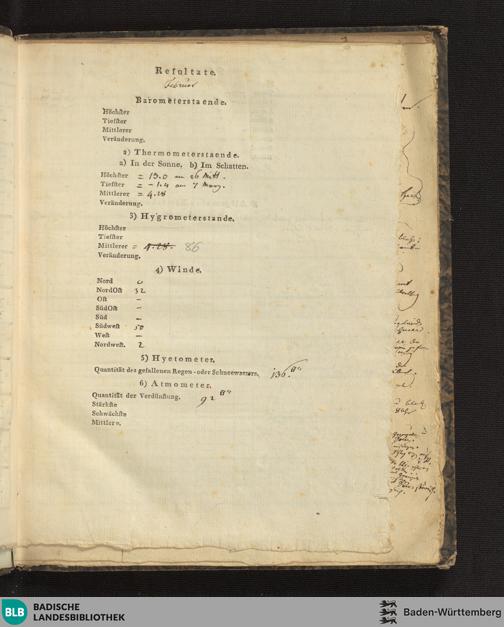 Reſultate.
Februar
Barometerstaende.
Höchſter
Tiefſter
Mittlerer
Veränderung.
2) Thermometerstaende.
a) In der Sonne, b) Im Schatten.
Höchſter = 13.0 am 26 Mitt.
Tiefſter = - 1.4 am 7 Morg.
Mittlerer = 4.28
Veränderung.
3) Hygrometerstande.
Höchſter
Tiefſter
Mittlerer = 4.28. 86
Veränderung.
4) Winde.
Nord 0
NordOſt 32
Oſt –
SüdOſt –
Süd –
Südweſt 50
Weſt –
Nordweſt. 2
5) Hyetometer.
Quantität des gefallenen Regen - oder Schneewaſſers, 136.
6) Atmometer.
Quantität der Verdünſtung. 92
Stärkſte
Schwächſte
Mittlere.
BLB BADISCHE
LANDESBIBLIOTHEK
Baden-Württemberg